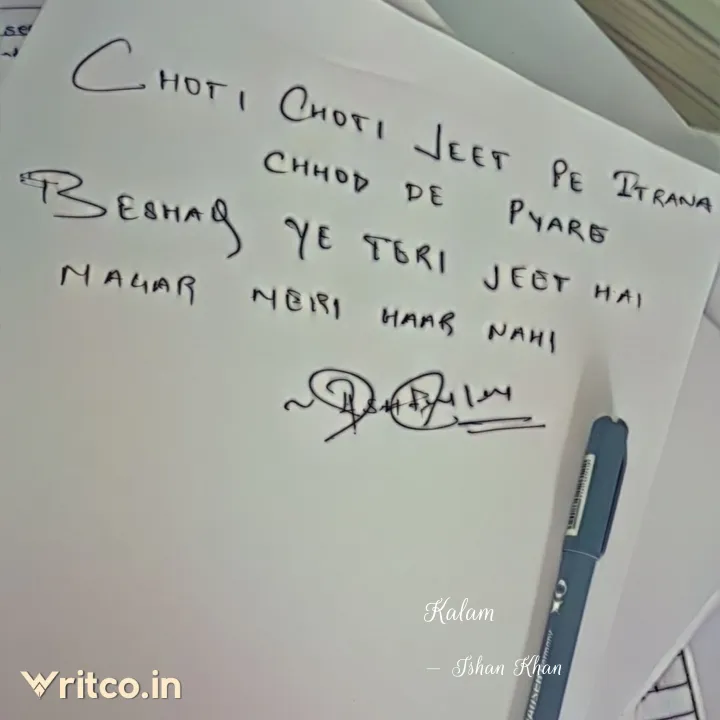 CHOTI CHOTI JEET PE ITRANA
CHHOD DE PYARE
BESHAQ YE TERI JEET HAI
MAGAR MERI HAAR NAHI
Kalam
– Ishan Khan
Writco.in